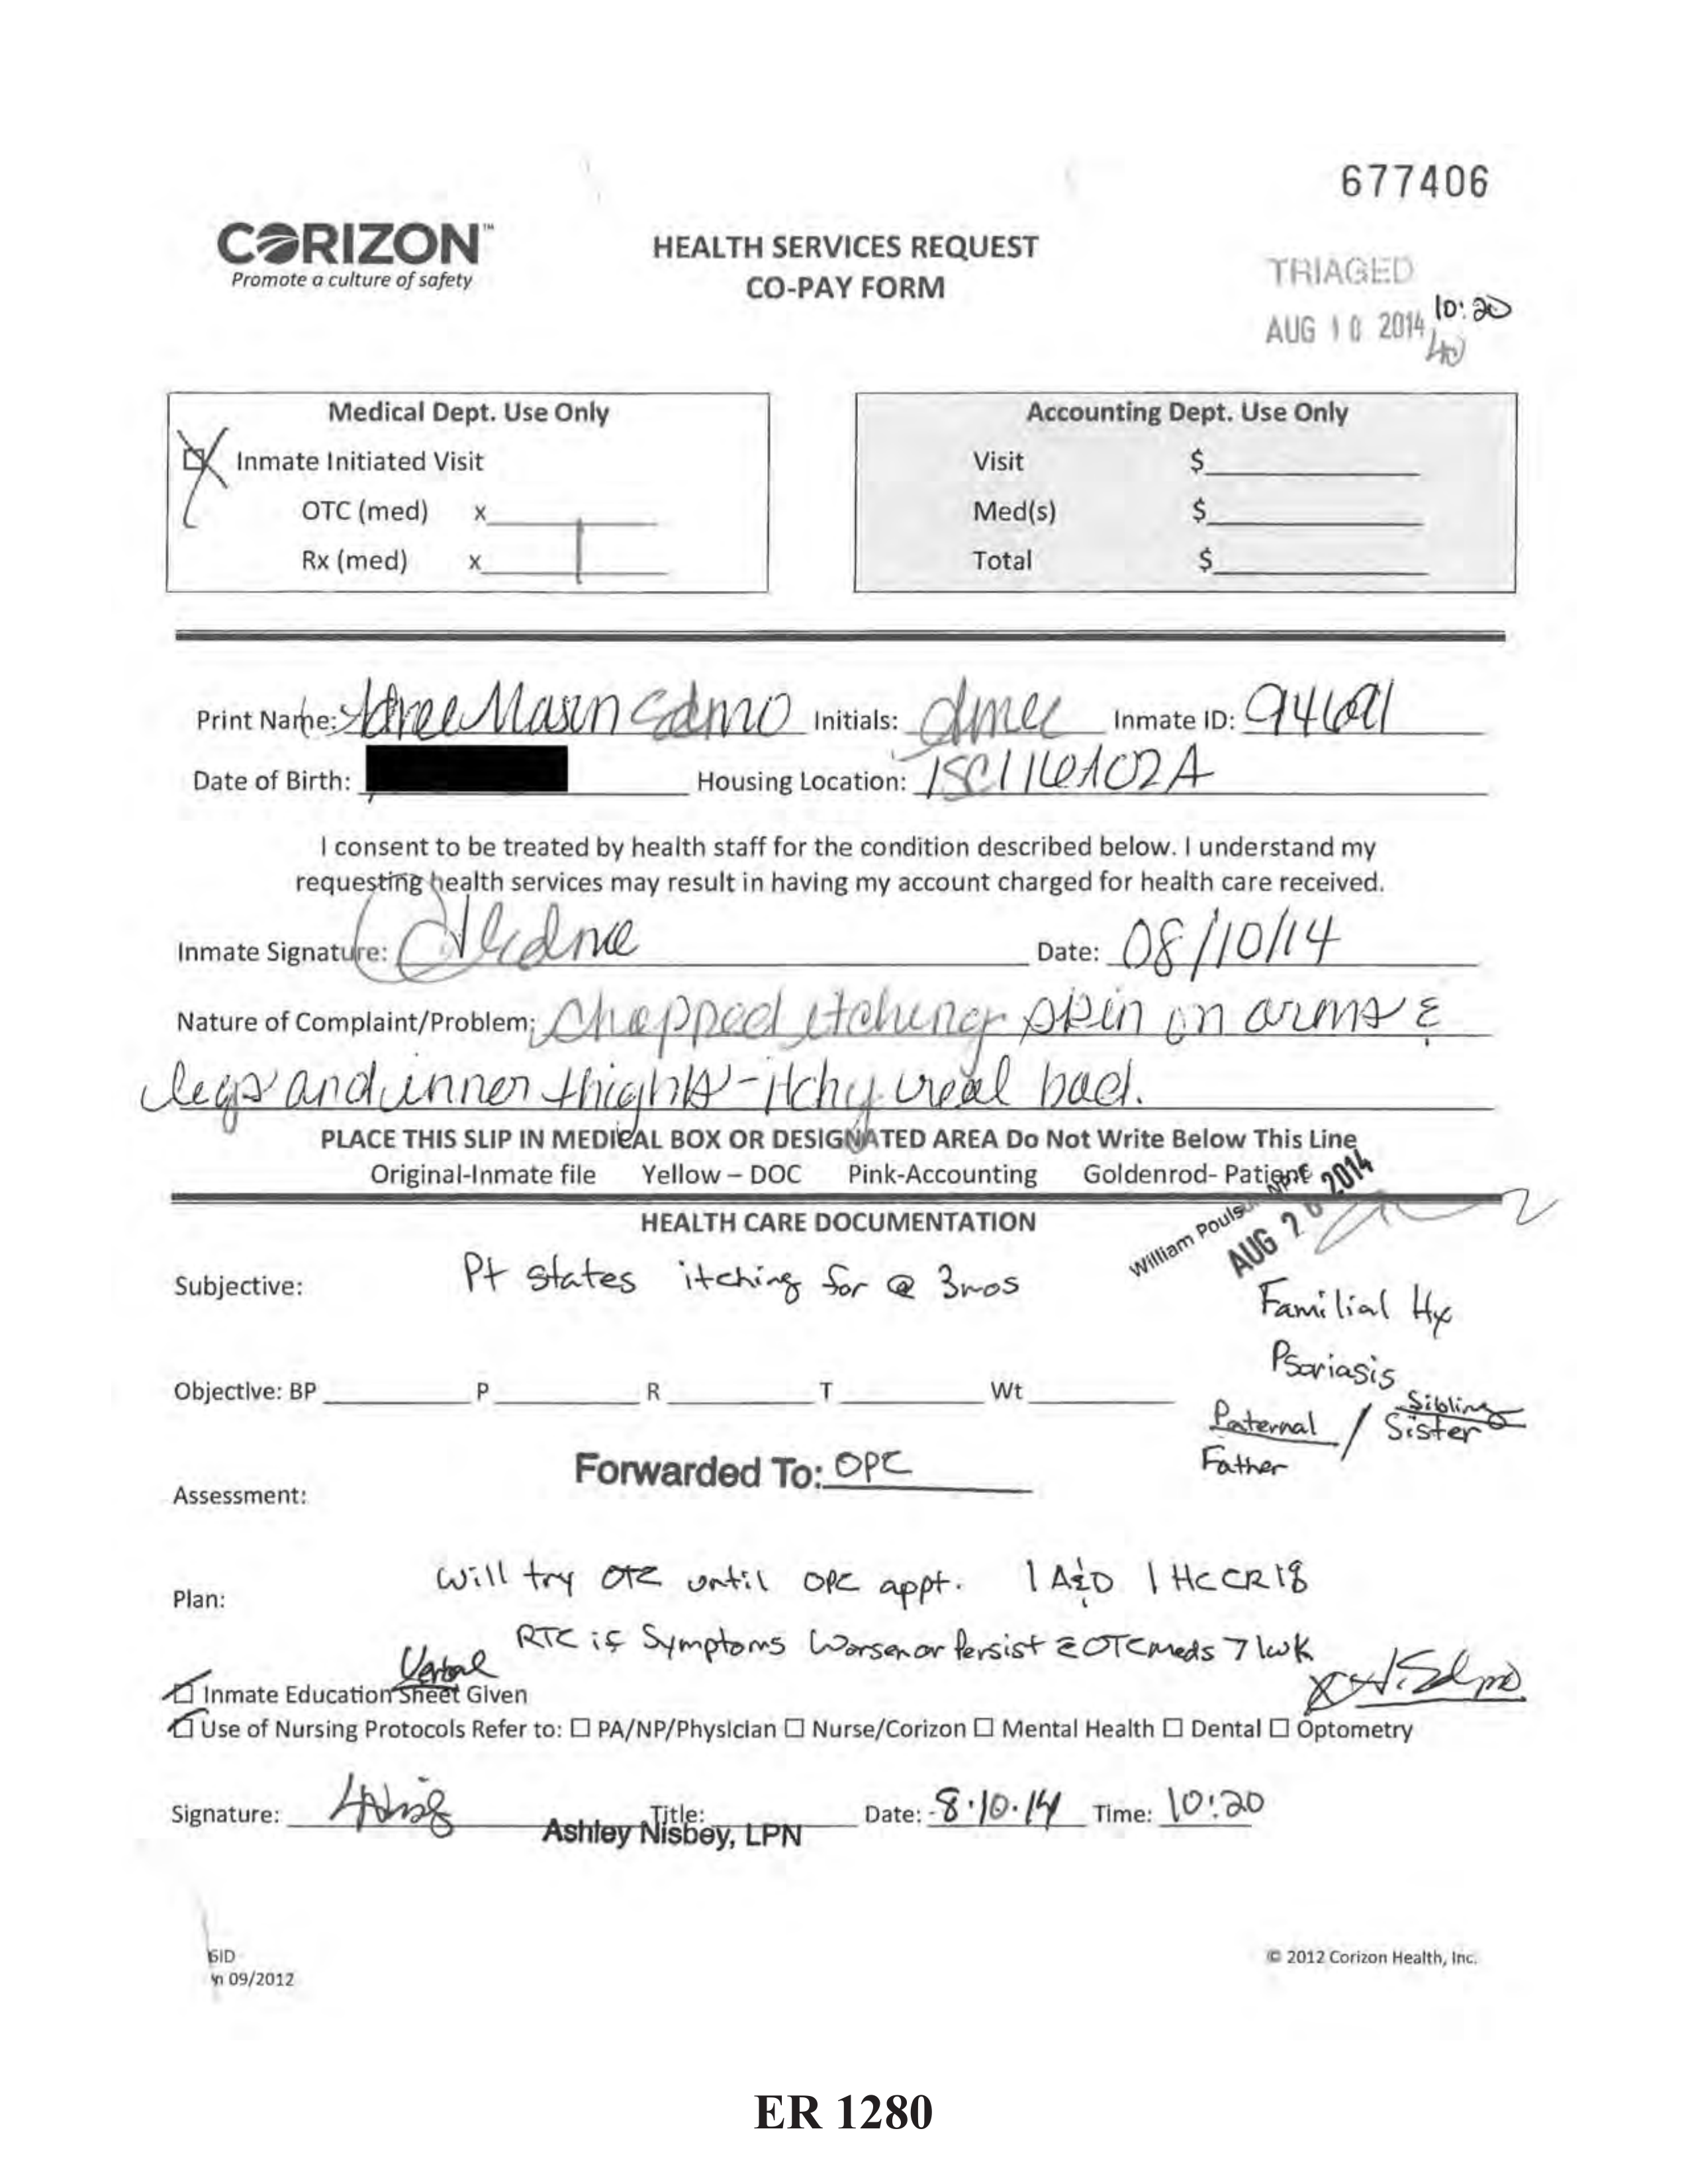 677406
CORIZON™
Promote a culture of safety
HEALTH SERVICES REQUEST
CO-PAY FORM
TRIAGED
AUG 10 2014 10:20
Medical Dept. Use Only
Inmate Initiated Visit
OTC (med) x
Rx (med) x
Accounting Dept. Use Only
Visit $
Med(s) $
Total $
Print Name: Mason Edmo Initials: Inmate ID: 94691
Date of Birth: Housing Location:
I consent to be treated by health staff for the condition described below. I understand my
requesting health services may result in having my account charged for health care received.
Inmate Signature: Date: 08/10/14
Nature of Complaint/Problem: Chapped itching skin on arms &
legs and inner thighs - itchy real bad.
PLACE THIS SLIP IN MEDICAL BOX OR DESIGNATED AREA Do Not Write Below This Line
Original-Inmate file Yellow – DOC Pink-Accounting Goldenrod- Patient
HEALTH CARE DOCUMENTATION
William
AUG 2014
Subjective: Pt states itching for @ 3mos
Familial Hx
Psoriasis
Objective: BP P R T Wt
Sibling
Paternal / Sister
Father
Forwarded To: OPC
Assessment:
Plan: Will try OTC until OPC appt. 1 A&D 1 HCCR 18
RTC if Symptoms Worsen or Persist c OTC meds 7 1wk
Verbal
Inmate Education Sheet Given
Use of Nursing Protocols Refer to: ☐ PA/NP/Physician ☐ Nurse/Corizon ☐ Mental Health ☐ Dental ☐ Optometry
Signature: Title: Date: 8·10·14 Time: 10:20
Ashley Nisbey, LPN
© 2012 Corizon Health, Inc.
09/2012
ER 1280